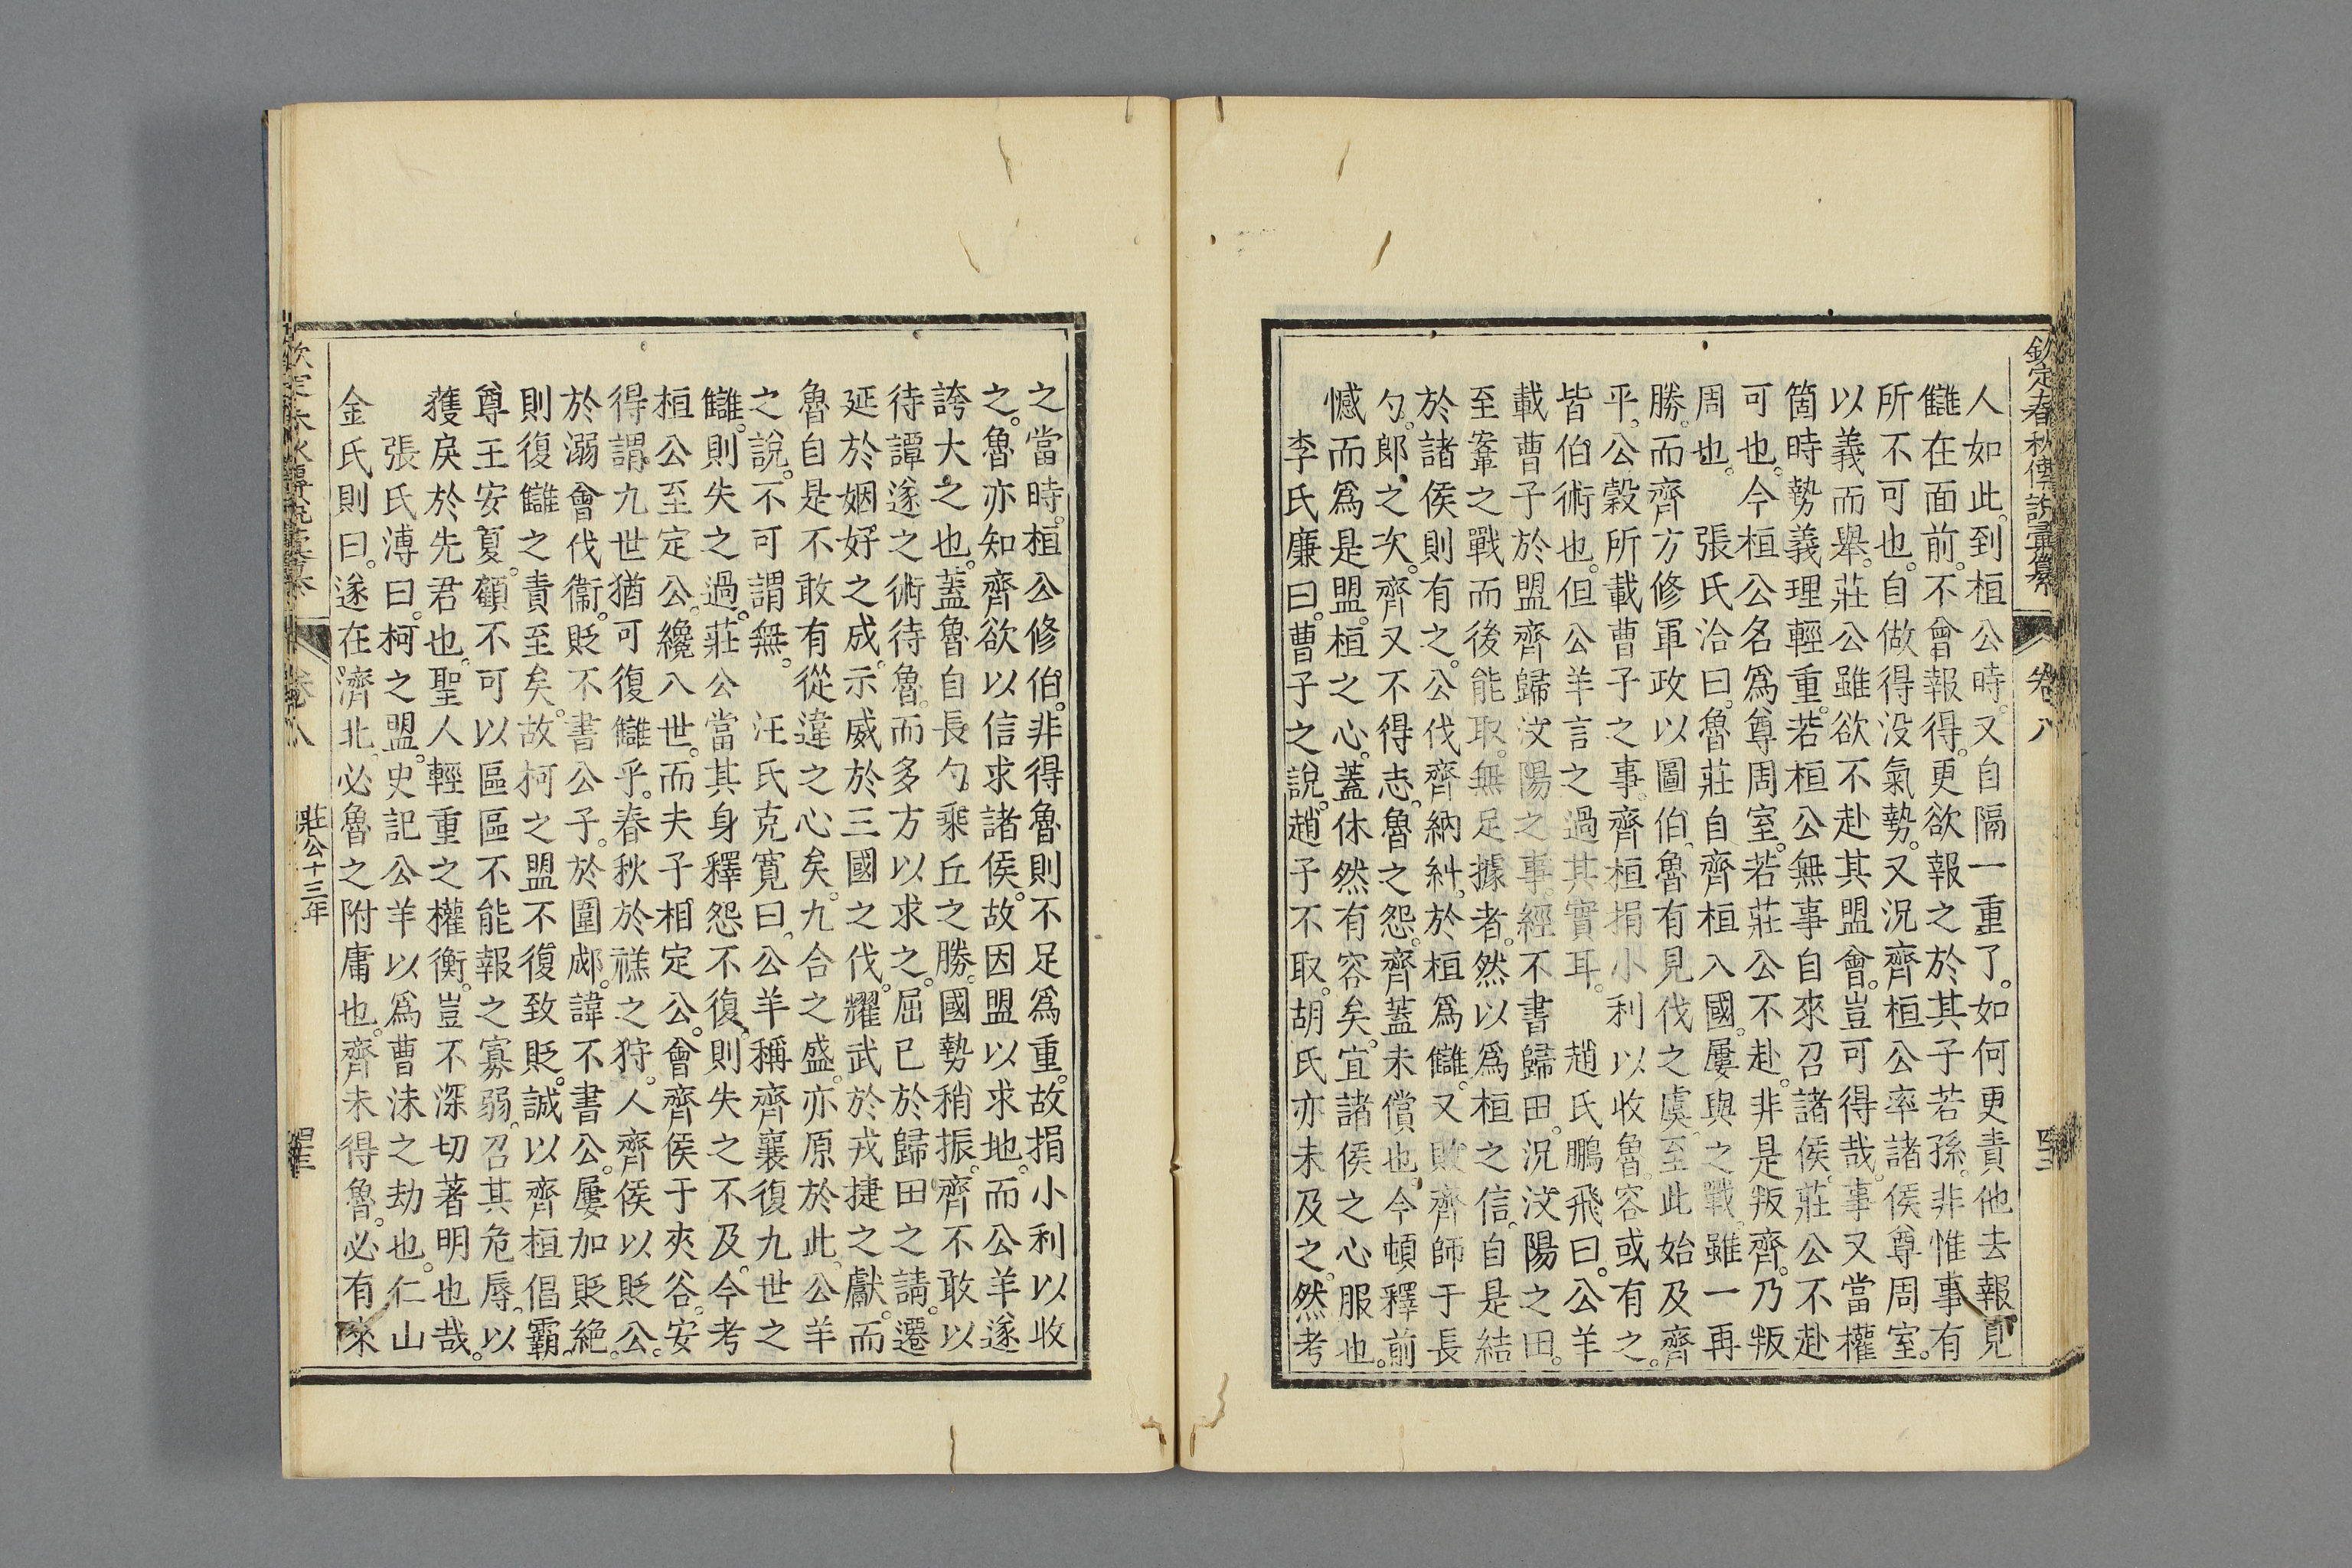 欽定春秋傳說彙纂 卷八
人如此。到桓公時。又自隔一重了。如何更責他去報。見
讎在面前。不曾報得。更欲報之於其子若孫。非惟事有
所不可也。自做得没氣勢。又況齊桓公率諸侯尊周室。
以義而舉。莊公雖欲不赴其盟會。豈可得哉。事又當權
箇時勢義理輕重。若桓公無事自來召諸侯。莊公不赴
可也。今桓公名爲尊周室。若莊公不赴。非是叛齊。乃叛
周也。 張氏洽曰。魯莊自齊桓入國。屢與之戰。雖一再
勝。而齊方修軍政以圖伯。魯有見伐之虞。至此始及齊
平。公穀所載曹子之事。齊桓捐小利以收魯。容或有之。
皆伯術也。但公羊言之過其實耳。 趙氏鵬飛曰。公羊
載曹子於盟齊歸汶陽之事。經不書歸田。況汶陽之田。
至鞌之戰而後能取。無足據者。然以爲桓之信。自是結
於諸侯則有之。公伐齊納糾。於桓爲讎。又敗齊師于長
勺。郎之次。齊又不得志。魯之怨。齊蓋未償也。今頓釋前
憾而爲是盟。桓之心。蓋休然有容矣。宜諸侯之心服也。
李氏廉曰。曹子之說。趙子不取。胡氏亦未及之。然考
之當時。桓公修伯。非得魯則不足爲重。故捐小利以收
之。魯亦知齊欲以信求諸侯。故因盟以求地。而公羊遂
誇大之也。蓋魯自長勺。乘丘之勝。國勢稍振。齊不敢以
待譚遂之術待魯。而多方以求之。屈已於歸田之請。遷
延於姻好之成。示威於三國之伐。耀武於戎捷之獻。而
魯自是不敢有從違之心矣。九合之盛。亦原於此。公羊
之說。不可謂無。 汪氏克寬曰。公羊稱齊襄復九世之
讎。則失之過。莊公當其身釋怨不復。則失之不及。今考
桓公至定公。纔八世。而夫子相定公。會齊侯于夾谷。安
得謂九世猶可復讎乎。春秋於禚之狩。人齊侯以貶公。
於溺會伐衞。貶不書公子。於圍郕。諱不書公。屢加貶絶。
則復讎之責至矣。故柯之盟不復致貶。誠以齊桓倡霸。
尊王安夏。顧不可以區區不能報之寡弱。召其危辱。以
獲戾於先君也。聖人輕重之權衡。豈不深切著明也哉。
張氏溥曰。柯之盟。史記公羊以爲曹沬之劫也。仁山
金氏則曰。遂在濟北。必魯之附庸也。齊未得魯。必有來
卷八 莊公十三年